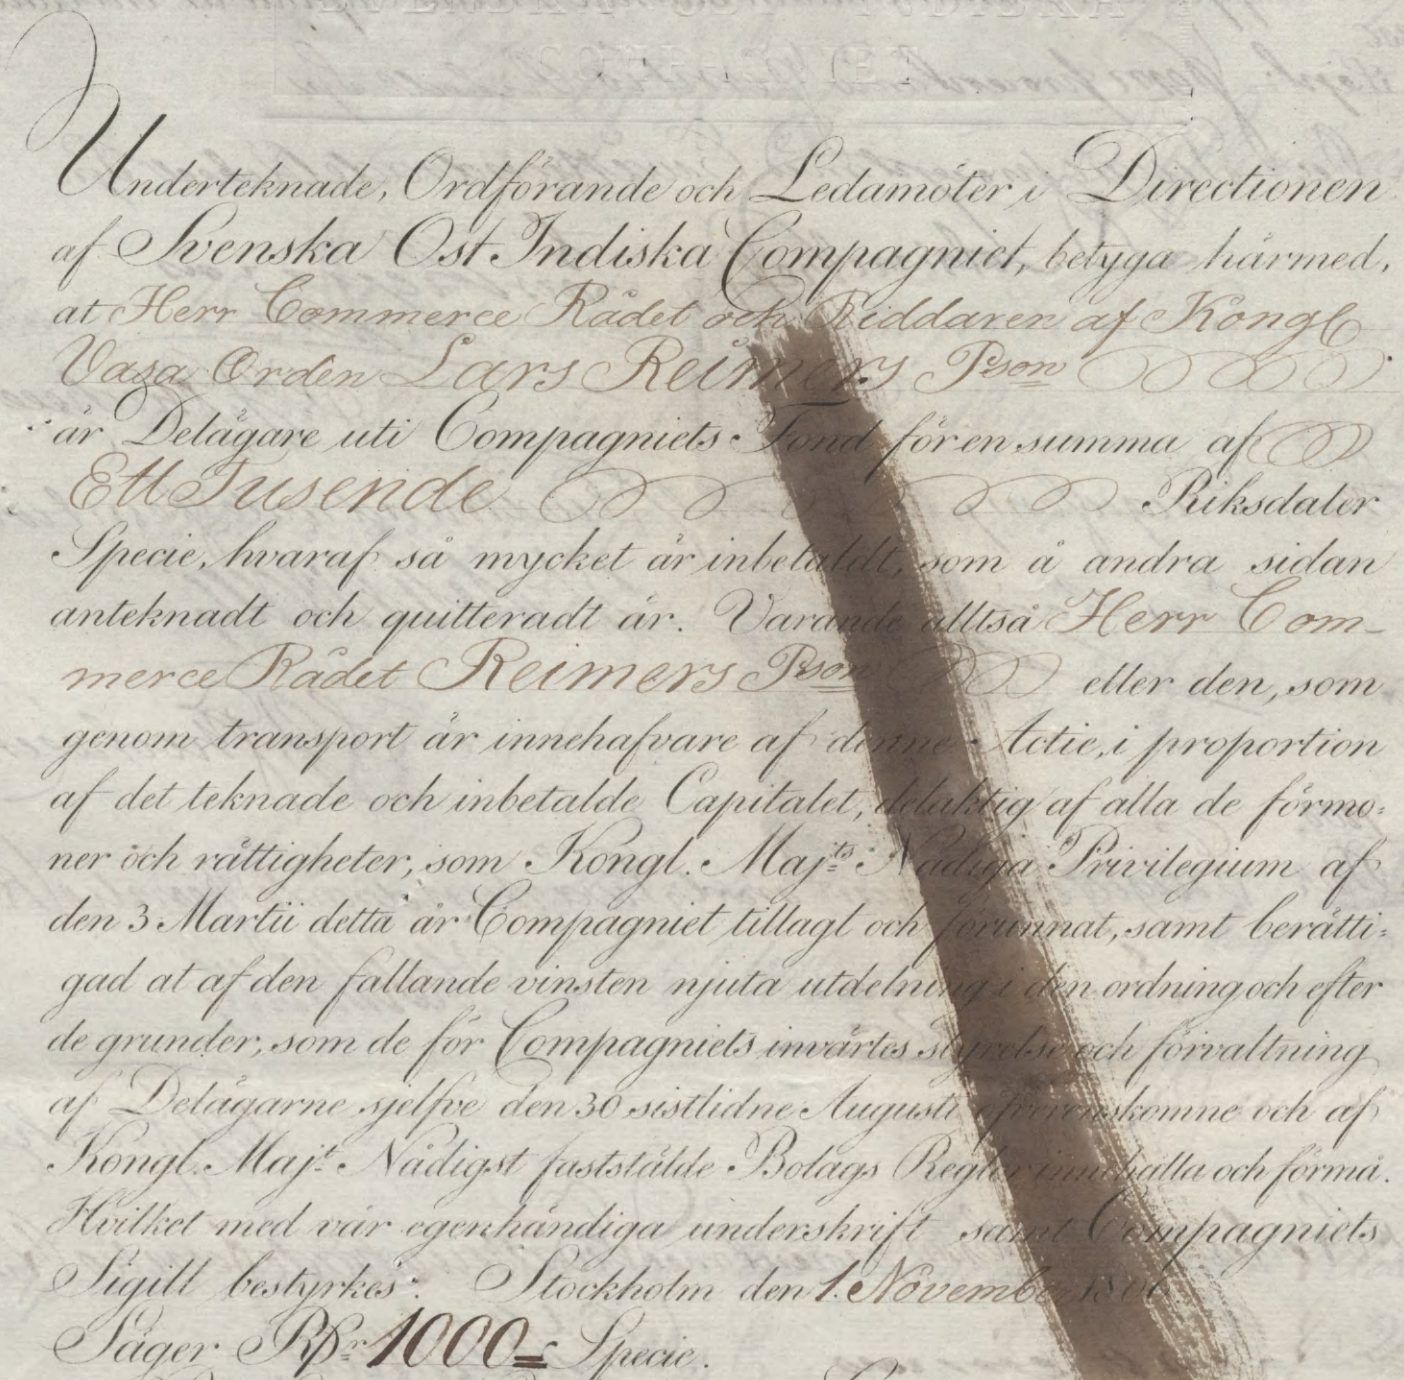 Underteknade, Ordförande och Ledamöter i Directionen
af Svenska Ost Indiska Compagniet, betyga härmed,
at Herr Commerce Rådet och Riddaren af Kongl
Vasa Orden Lars Reimers P:son
är Delägare uti Compagniets Fond för en summa af
Ett Tusende Riksdaler
Specie, hvaraf så mycket är inbetaldt, som å andra sidan
anteknadt och quitteradt är. Varande alltså Herr Com-
merce Rådet Reimers P:son eller den, som
genom transport är innehafvare af denne Actie, i proportion
af det teknade och inbetalde Capitalet, delaktig af alla de förmo:
ner och rättigheter, som Kongl. Maj:ts Nådiga Privilegium af
den 3 Martii detta år Compagniet tillagt och förunnat, samt berätti:
gad at af den fallande vinsten njuta utdelning i den ordning och efter
de grunder, som de för Compagniets invärtes styrelse och förvaltning
af Delägarne sjelfve den 30 sistlidne Augusti öfverenskomne och af
Kongl. Maj:t Nådigst faststälde Bolags Regler innehålla och förmå.
Hvilket med vår egenhändiga underskrift samt Compagniets
Sigill bestyrkes. Stockholm den 1. November 1806
Säger Rd:r 1000 Specie.